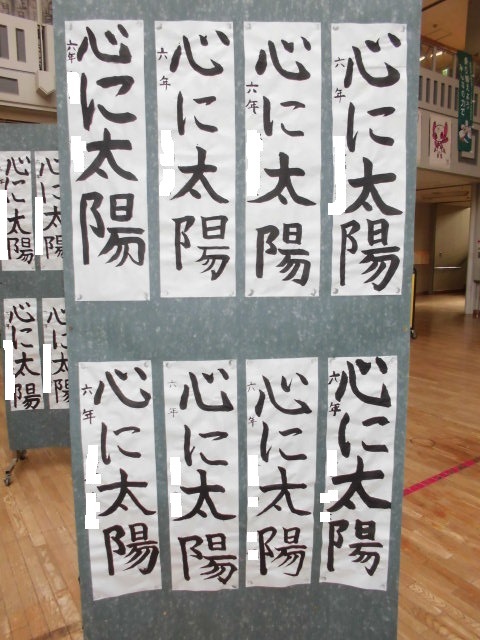 心に太陽
六年
心に太陽
六年
心に太陽
六年
心に太陽
六年
心に太陽
六年
心に太陽
六年
心に太陽
六年
心に太陽
六年
心に太陽
心に太陽
心に太陽
心に太陽